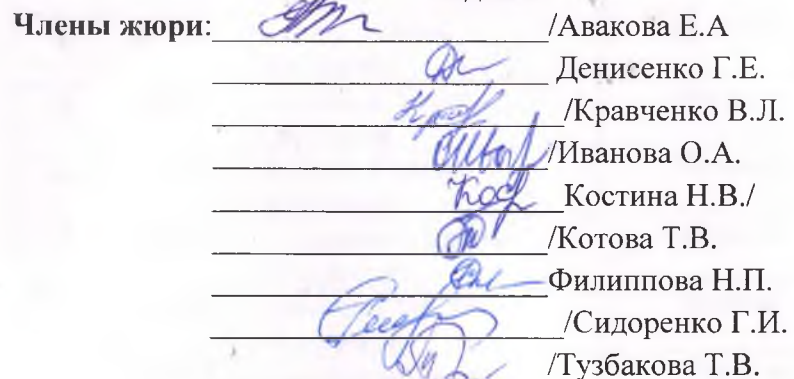 Члены жюри: /Авакова Е.А
Денисенко Г.Е.
/Кравченко В.Л.
/Иванова О.А.
Костина Н.В./
/Котова Т.В.
Филиппова Н.П.
/Сидоренко Г.И.
/Тузбакова Т.В.